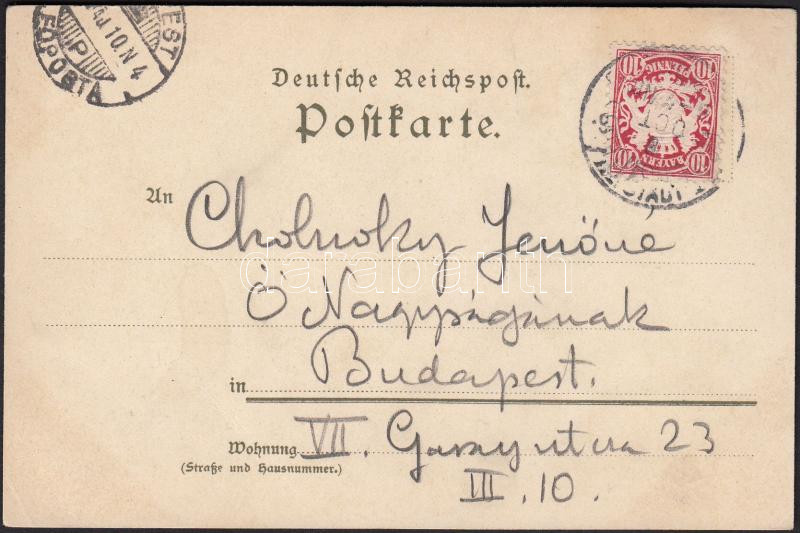 EST
10.N 4
P
FŐPOSTA
Deutsche Reichspost.
Postkarte.
10 10
PFENNIG
BAYERN
10 10
100
STADT
An Cholnoky Jenőné
Ő Nagyságának
darabanth
in Budapest.
Wohnung VII. Garay utca 23
(Straße und Hausnummer.)
III. 10.